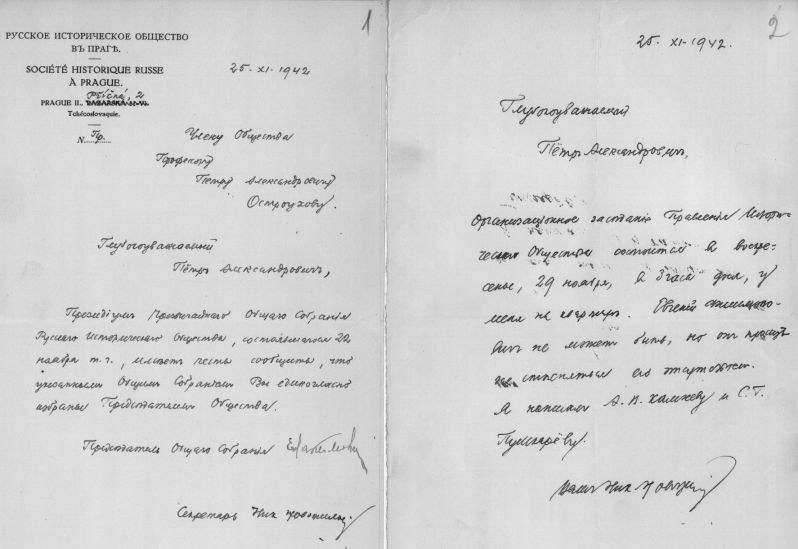 1
РУССКОЕ ИСТОРИЧЕСКОЕ ОБЩЕСТВО
ВЪ ПРАГѢ.
SOCIÉTÉ HISTORIQUE RUSSE
À PRAGUE.
PRAGUE II.,
Tchécoslovaquie.
N. Пр.
25. XI-1942
Члену Общества
Профессору
Петру Александровичу
Остроухову.
Глубокоуважаемый
Пётръ Александровичъ,
Президіум Общаго Собранія
Русскаго Историческаго Общества, состоявшагося 22
ноября т. г., имѣет честь сообщить, что
указанным Общим Собраніем Вы единогласно
избраны Предсѣдателем Общества.
Предсѣдатель Общаго Собранія
Секретарь Ник.
2
25. XI-1942.
Глубокоуважаемый
Пётръ Александровичъ,
Организаціонное засѣданіе Правленія Истори-
ческаго Общества состоится в воскре-
сенье, 29 ноября, в 3 часа дня, у
меня на квартирѣ. Евгеній
вич не может быть, но он просит
не стѣсняться его отсутствіем.
Я написал А. В. и С. Г.
Пушкарёву.
Ваш Ник.